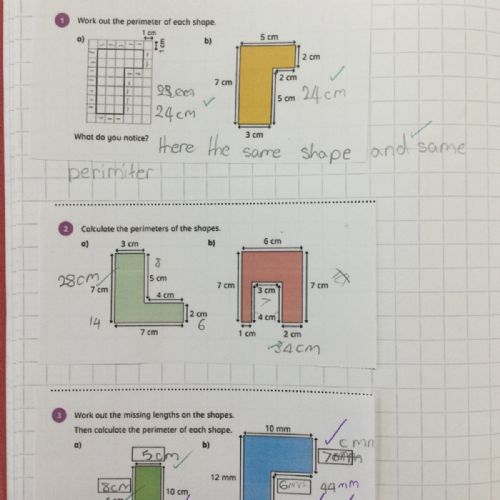 1 Work out the perimeter of each shape.
a) 1 cm 1 cm b) 5 cm
2 cm
7 cm 2 cm
24 cm 5 cm 24cm
3 cm
What do you notice? there the same shape and same
perimiter
2 Calculate the perimeters of the shapes.
a) 3 cm b) 6 cm
8
28cm 7 cm 5 cm 7 cm 3 cm 7 cm
4 cm 7
2 cm 4 cm
14 7 cm 6 1 cm 2 cm
34cm
3 Work out the missing lengths on the shapes.
Then calculate the perimeter of each shape.
a) 5cm b) 10 mm
8cm 10 cm 12 mm 6mm 44mm